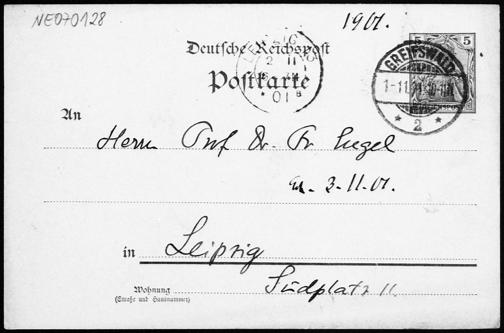 NE070128
1901.
Deutsche Reichspost
Postkarte
5 5
LEIPZIG
2 11
01
GREIFSWALD
1-11.01.
* 2 *
An
Herrn Prof Dr. Fr Engel
3-11-01.
in Leipzig
Südplatz 11.
Wohnung
(Straße und Hausnummer)